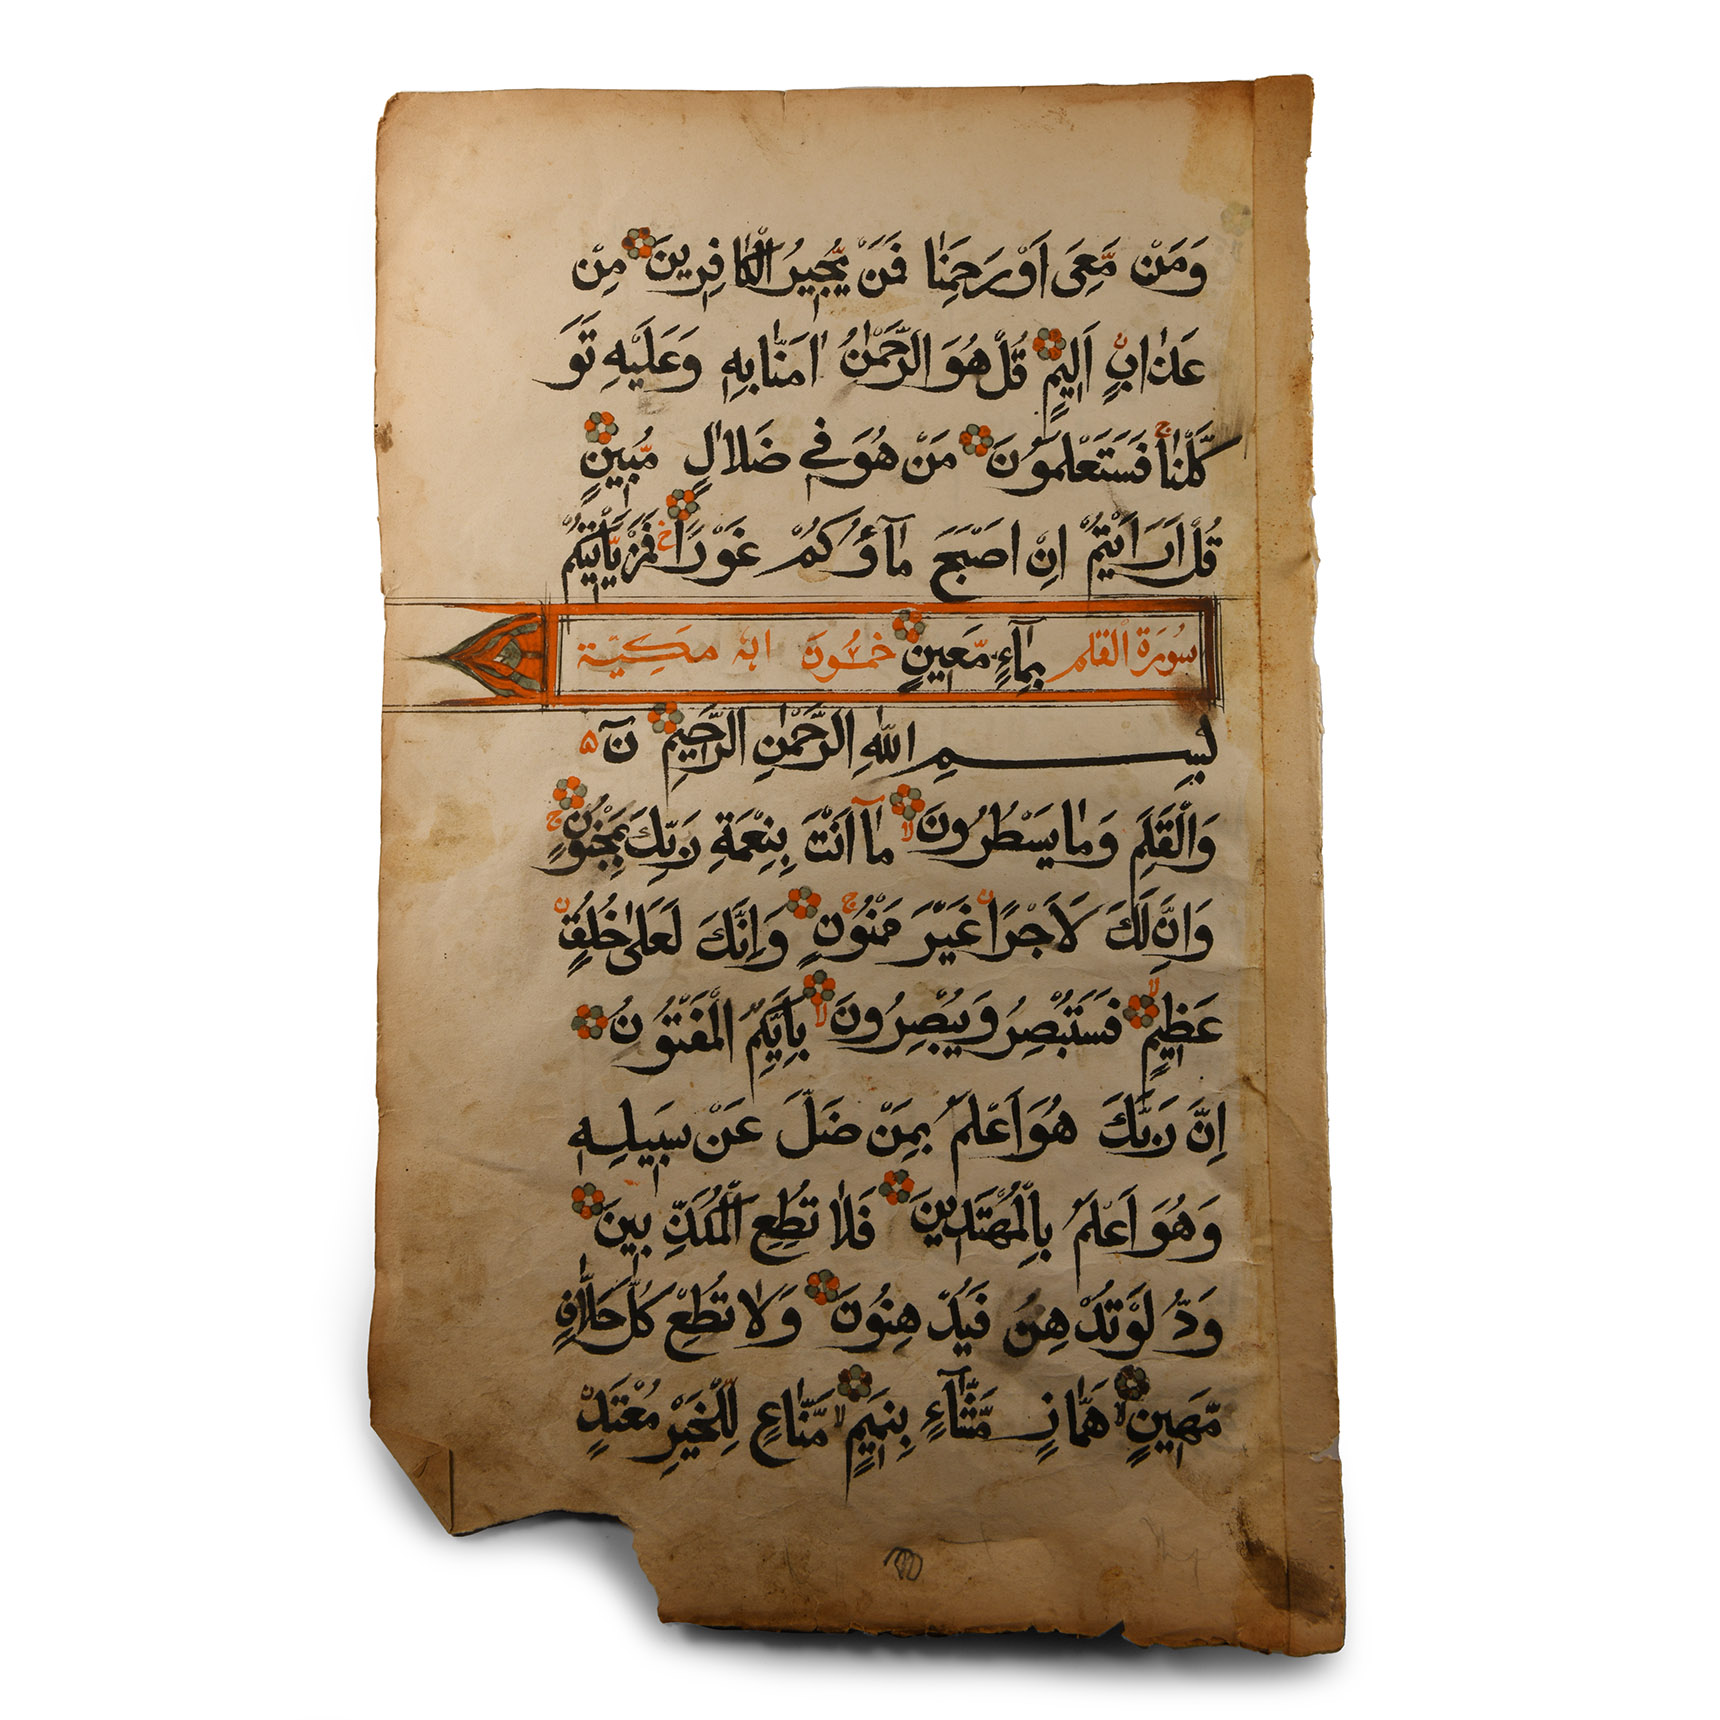 وَمَنْ مَّعِىَ اَوْ رَحِمَنَا فَمَنْ يُّجِيرُ الْكَافِرِينَ مِنْ
عَذَابٍ اَلِيمٍ قُلْ هُوَ الرَّحْمٰنُ اٰمَنَّا بِهِ وَعَلَيْهِ تَوَ
كَّلْنَا ج فَسَتَعْلَمُونَ مَنْ هُوَ فِى ضَلَالٍ مُّبِينٍ
قُلْ اَرَاَيْتُمْ اِنْ اَصْبَحَ مَآؤُكُمْ غَوْرًا فَمَنْ يَّاْتِيكُمْ
سُورَةُ الْقَلَم بِمَآءٍ مَّعِينٍ خمسون اية مَكِيّة
بِسْمِ اللّٰهِ الرَّحْمٰنِ الرَّحِيمِ نٓ ۵
وَالْقَلَمِ وَمَا يَسْطُرُونَ لا مَآ اَنْتَ بِنِعْمَةِ رَبِّكَ بِمَجْنُونٍ ج
وَاِنَّ لَكَ لَاَجْرًا غَيْرَ مَمْنُونٍ ج وَاِنَّكَ لَعَلٰى خُلُقٍ
عَظِيمٍ لا فَسَتُبْصِرُ وَيُبْصِرُونَ لا بِاَيِّكُمُ الْمَفْتُونُ
اِنَّ رَبَّكَ هُوَ اَعْلَمُ بِمَنْ ضَلَّ عَنْ سَبِيلِهِ
وَهُوَ اَعْلَمُ بِالْمُهْتَدِينَ فَلَا تُطِعِ الْمُكَذِّبِينَ
وَدُّ لَوْ تُدْهِنُ فَيُدْهِنُونَ وَلَا تُطِعْ كُلَّ حَلَّافٍ
مَّهِينٍ لا هَمَّازٍ مَّشَّآءٍ بِنَمِيمٍ لا مَّنَّاعٍ لِّلْخَيْرِ مُعْتَدٍ